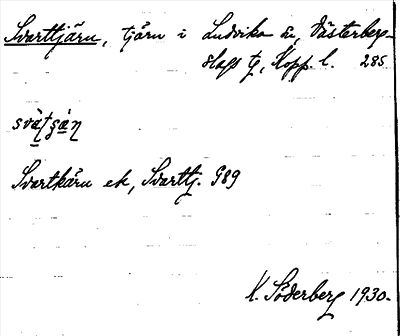 Svarttjärn, tjärn i Ludvika sn, Västerbergslags
tg, Kopp. l. 285
Svartkärn ek, Svarttj. G89
K. Söderberg 1930.